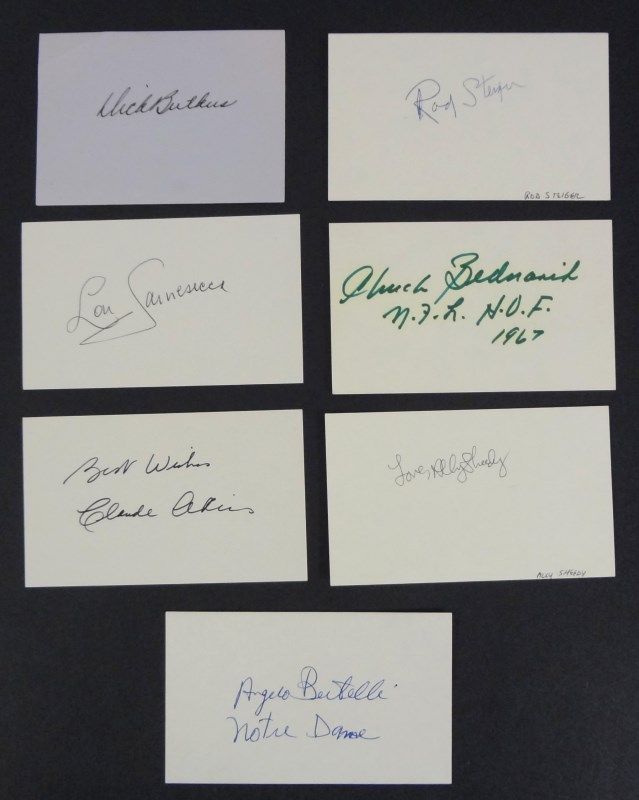 Dick Butkus
Rod Steiger
ROD STEIGER
Lou Carnesecca
Chuck Bednarik
N.F.L. H.O.F.
1967
Best Wishes
Claude Akins
Love, Ally Sheedy
ALLY SHEEDY
Angelo Bertelli
Notre Dame